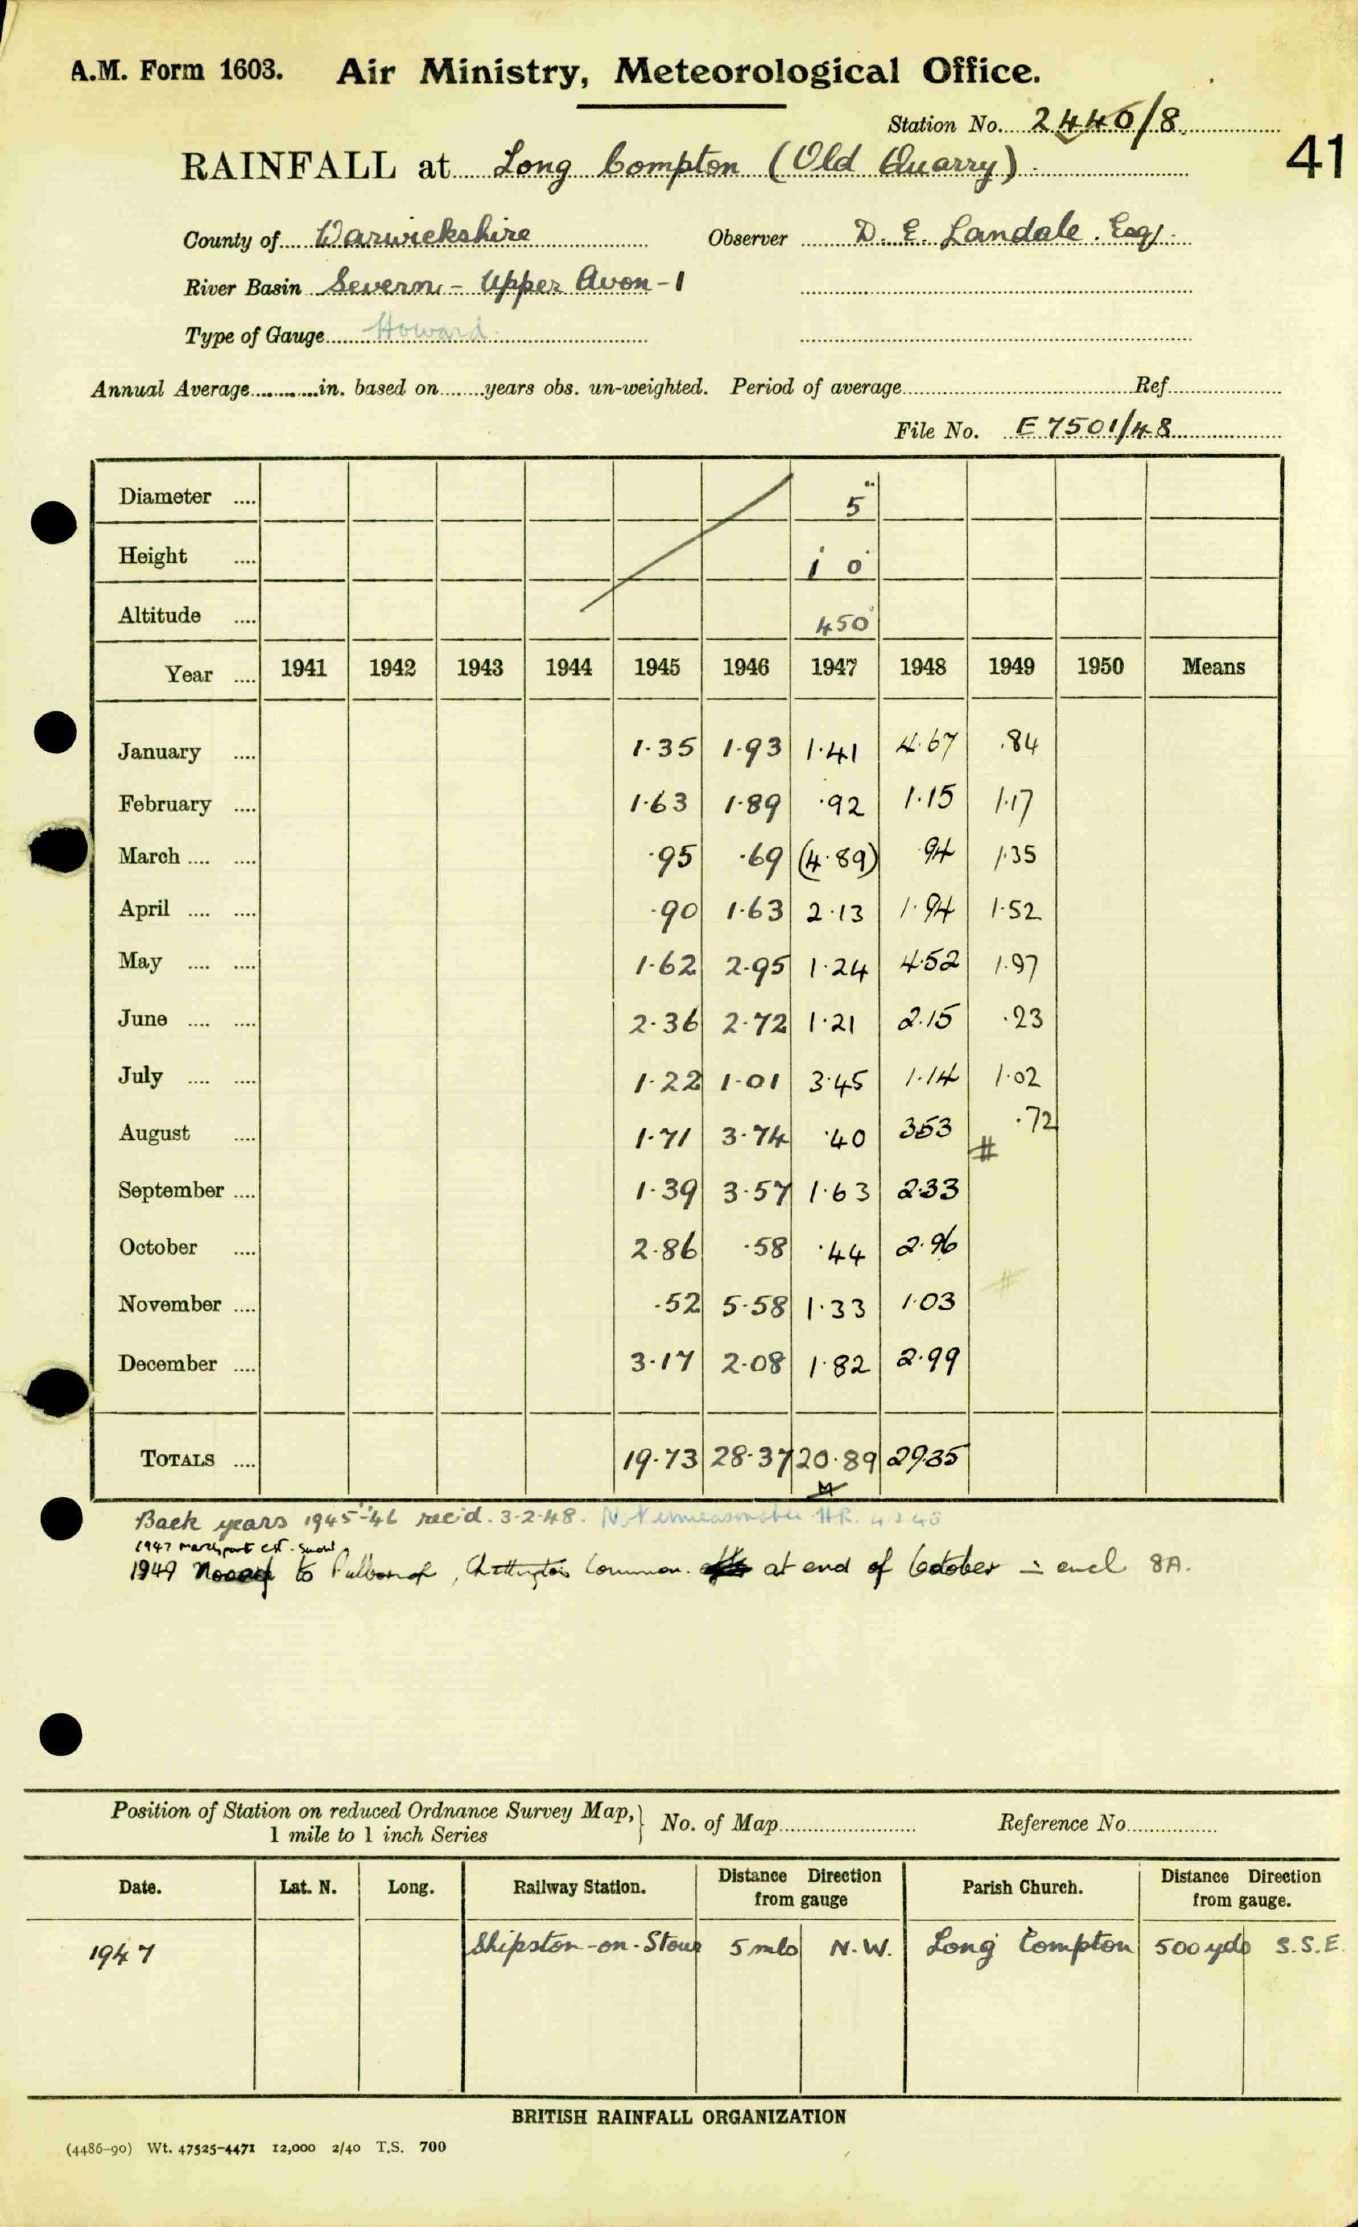 A.M. Form 1603. Air Ministry, Meteorological Office.
Station No. 2440/8
41
RAINFALL at Long Compton (Old Quarry)
County of Warwickshire Observer D. E. Landale. Esq.
River Basin Severn - Upper Avon - 1
Type of Gauge Howard
Annual Average in. based on years obs. un-weighted. Period of average Ref
File No. E 7501/48
Diameter 5"
Height 1 0
Altitude 450
Year 1941 1942 1943 1944 1945 1946 1947 1948 1949 1950 Means
January 1.35 1.93 1.41 4.67 .84
February 1.63 1.89 .92 1.15 1.17
March .95 .69 (4.89) .94 1.35
April .90 1.63 2.13 1.94 1.52
May 1.62 2.95 1.24 4.52 1.97
June 2.36 2.72 1.21 2.15 .23
July 1.22 1.01 3.45 1.14 1.02
August 1.71 3.74 .40 353 # .72
September 1.39 3.57 1.63 2.33
October 2.86 .58 .44 2.96
November .52 5.58 1.33 1.03 #
December 3.17 2.08 1.82 2.99
TOTALS 19.73 28.37 20.89 29.35
Back years 1945-46 rec'd. 3-2-48.
1947 March part est. snow
1949 to at end of October encl 8A.
Position of Station on reduced Ordnance Survey Map, 1 mile to 1 inch Series } No. of Map Reference No.
Date. Lat. N. Long. Railway Station. Distance Direction from gauge Parish Church. Distance Direction from gauge.
1947 Shipston-on-Stour 5 mls N.W. Long Compton 500 yds S.S.E.
BRITISH RAINFALL ORGANIZATION
(4486-90) Wt. 47525-4471 12,000 2/40 T.S. 700